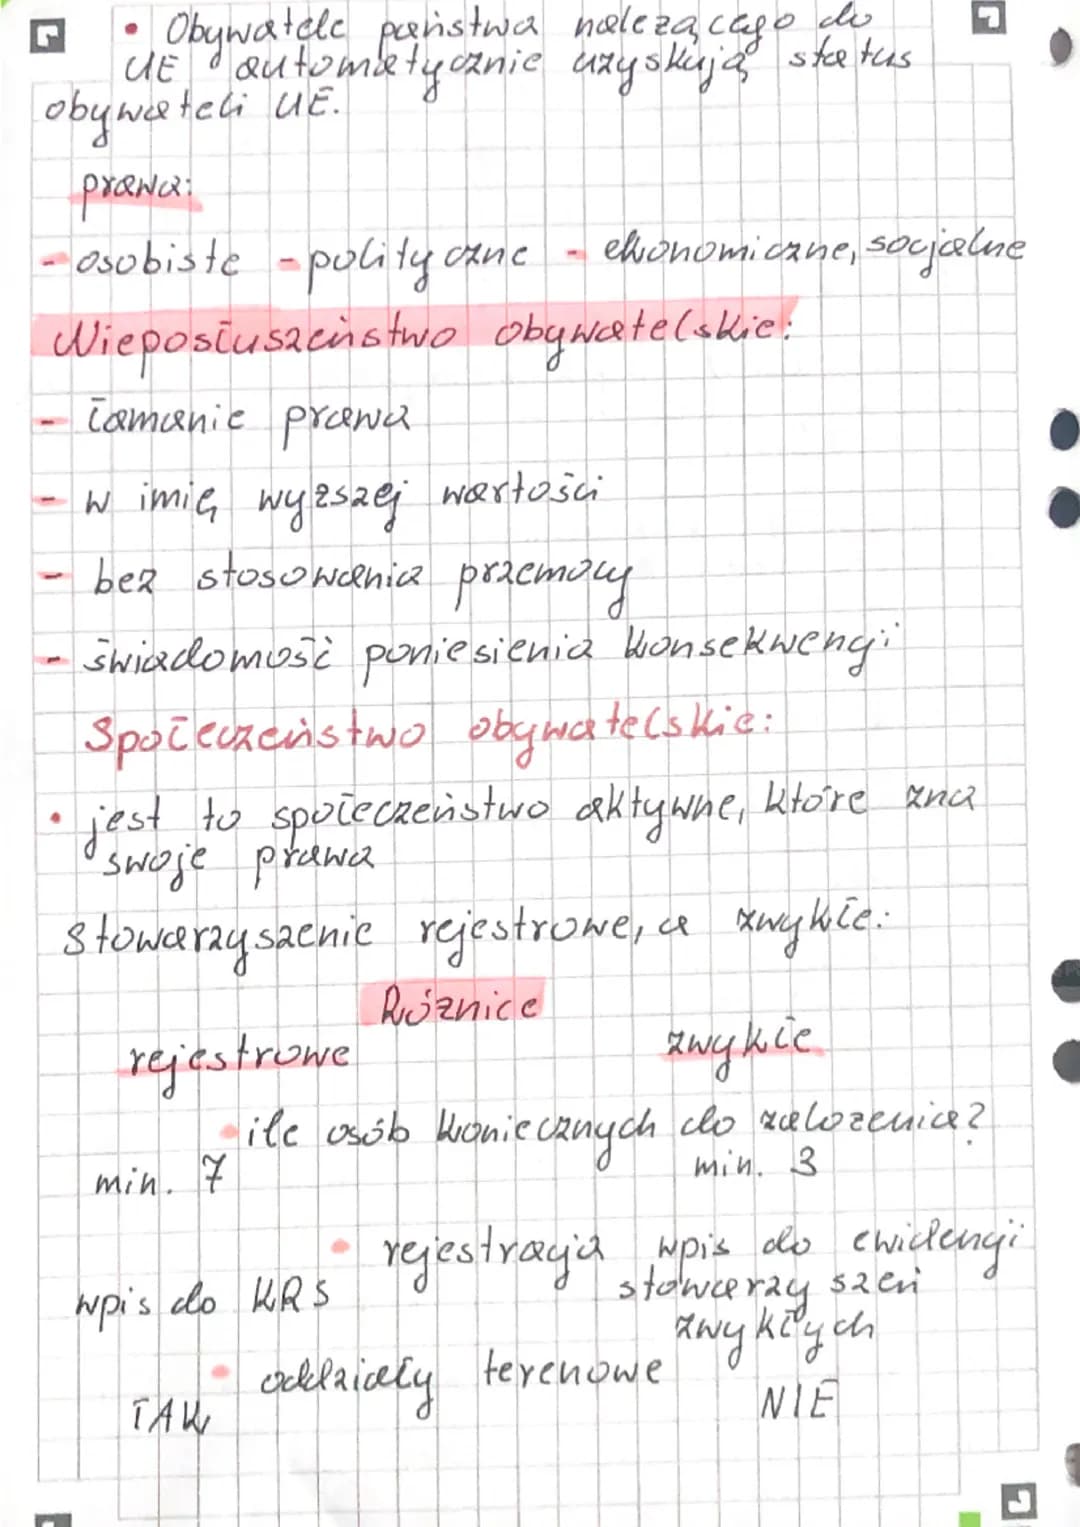 • Obywatele państwa należącego do
UE automatycznie uzyskują status
obywateli UE.
prawa:
- osobiste - polityczne - ekonomiczne, socjalne
Nieposłuszeństwo obywatelskie:
- łamanie prawa
- w imię wyższej wartości
- bez stosowania przemocy
- świadomość poniesienia konsekwencji
Społeczeństwo obywatelskie:
• jest to społeczeństwo aktywne, które zna
swoje prawa
Stowarzyszenie rejestrowe, a zwykłe:
Różnice
rejestrowe zwykłe
• ile osób koniecznych do założenia?
min. 7 min. 3
• rejestracja wpis do ewidencji
wpis do KRS stowarzyszeń
zwykłych
• oddziały terenowe
TAK NIE